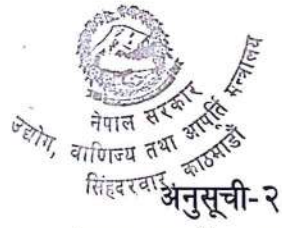 नेपाल सरकार
उद्योग, वाणिज्य तथा आपूर्ति मन्त्रालय
सिंहदरवार, काठमाडौं
अनुसूची-२